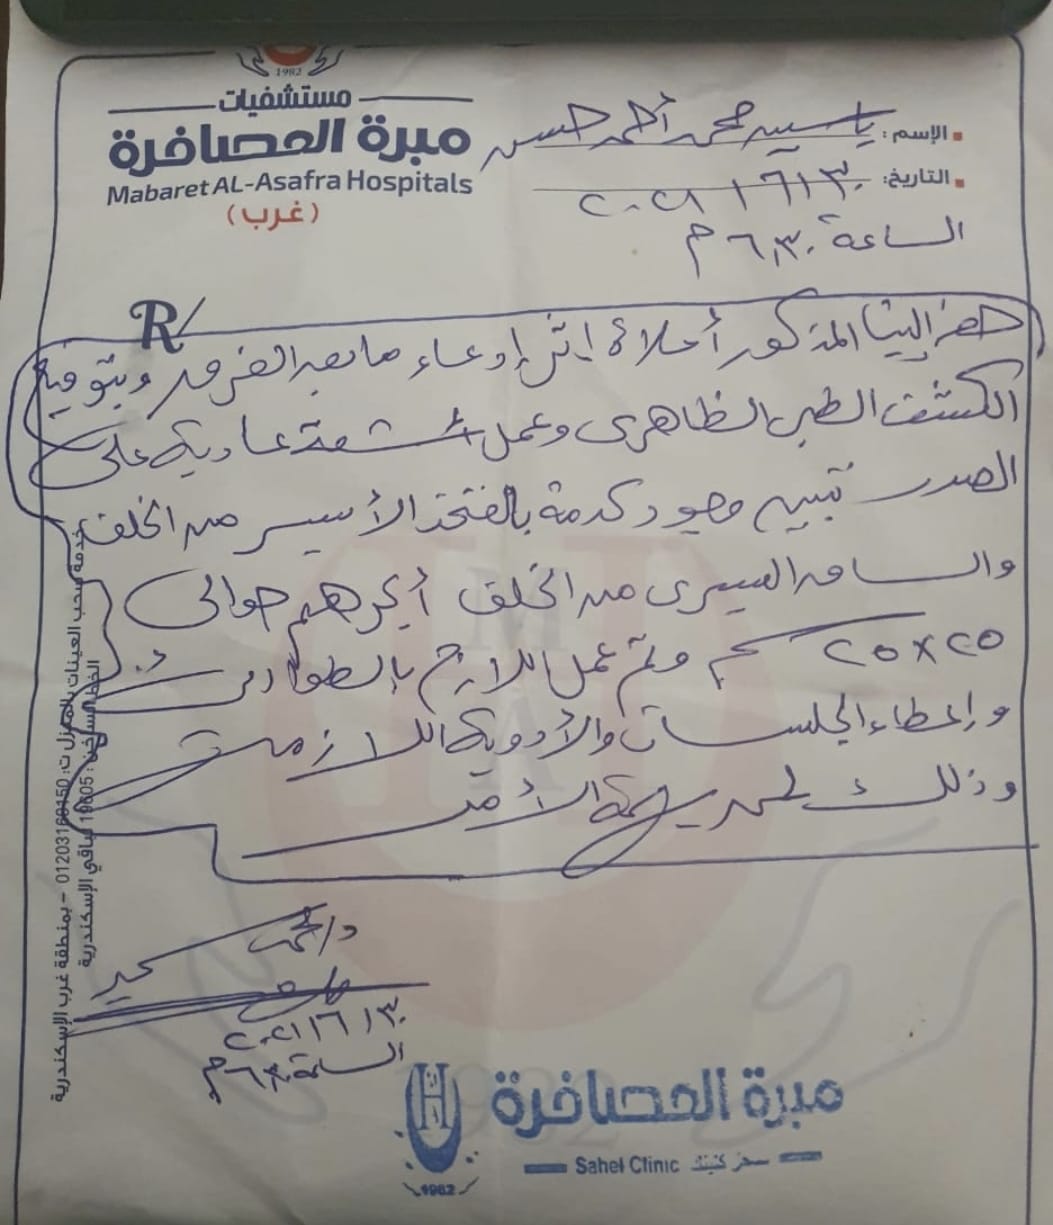 1982
مستشفيات
مبرة العصافرة
Mabaret AL-Asafra Hospitals
(غرب)
الإسم: ياسين محمد أحمد حسن
التاريخ: ٣٠/٦/٢٠٢١
الساعة ٦,٣٠ م
R/
حضر إلينا المذكور أعلاه إثر إدعاء ما بعد الغرق وبتوقيع
الكشف الطبي الظاهرى وعمل أشعة عادية على
الصدر تبين وجود كدمة بالفخذ الأيسر من الخلف
والساق اليسرى من الخلف أكبرهم حوالى
٢٥×٢٥ سم وتم عمل اللازم بالطوارئ
وإعطاء الجلسات والأدوية اللازمة
وذلك لحين الأمر
د/
٣٠/٦/٢٠٢١
الساعة ٦,٣٠ م
خدمة سحب العينات بالمنزل ت: 01203160150 - بمنطقة غرب الإسكندرية
الخط الساخن: 19605 لباقي الإسكندرية
مبرة العصافرة
Sahel Clinic
1982